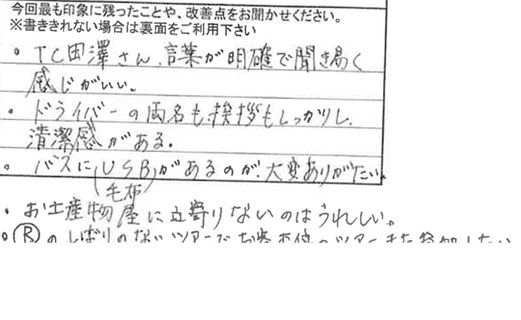 今回最も印象に残ったことや、改善点をお聞かせください。
※書ききれない場合は裏面をご利用下さい
・TC田澤さん、言葉が明確で聞き易く
感じがいい。
・ドライバーの両名も挨拶もしっかりし、
清潔感がある。
・バスに(USB)があるのが、大変ありがたい。
毛布
・お土産物屋に立寄りないのはうれしい。
・Ⓡのしばりのないツアーでお客本位のツアーまた参加したい